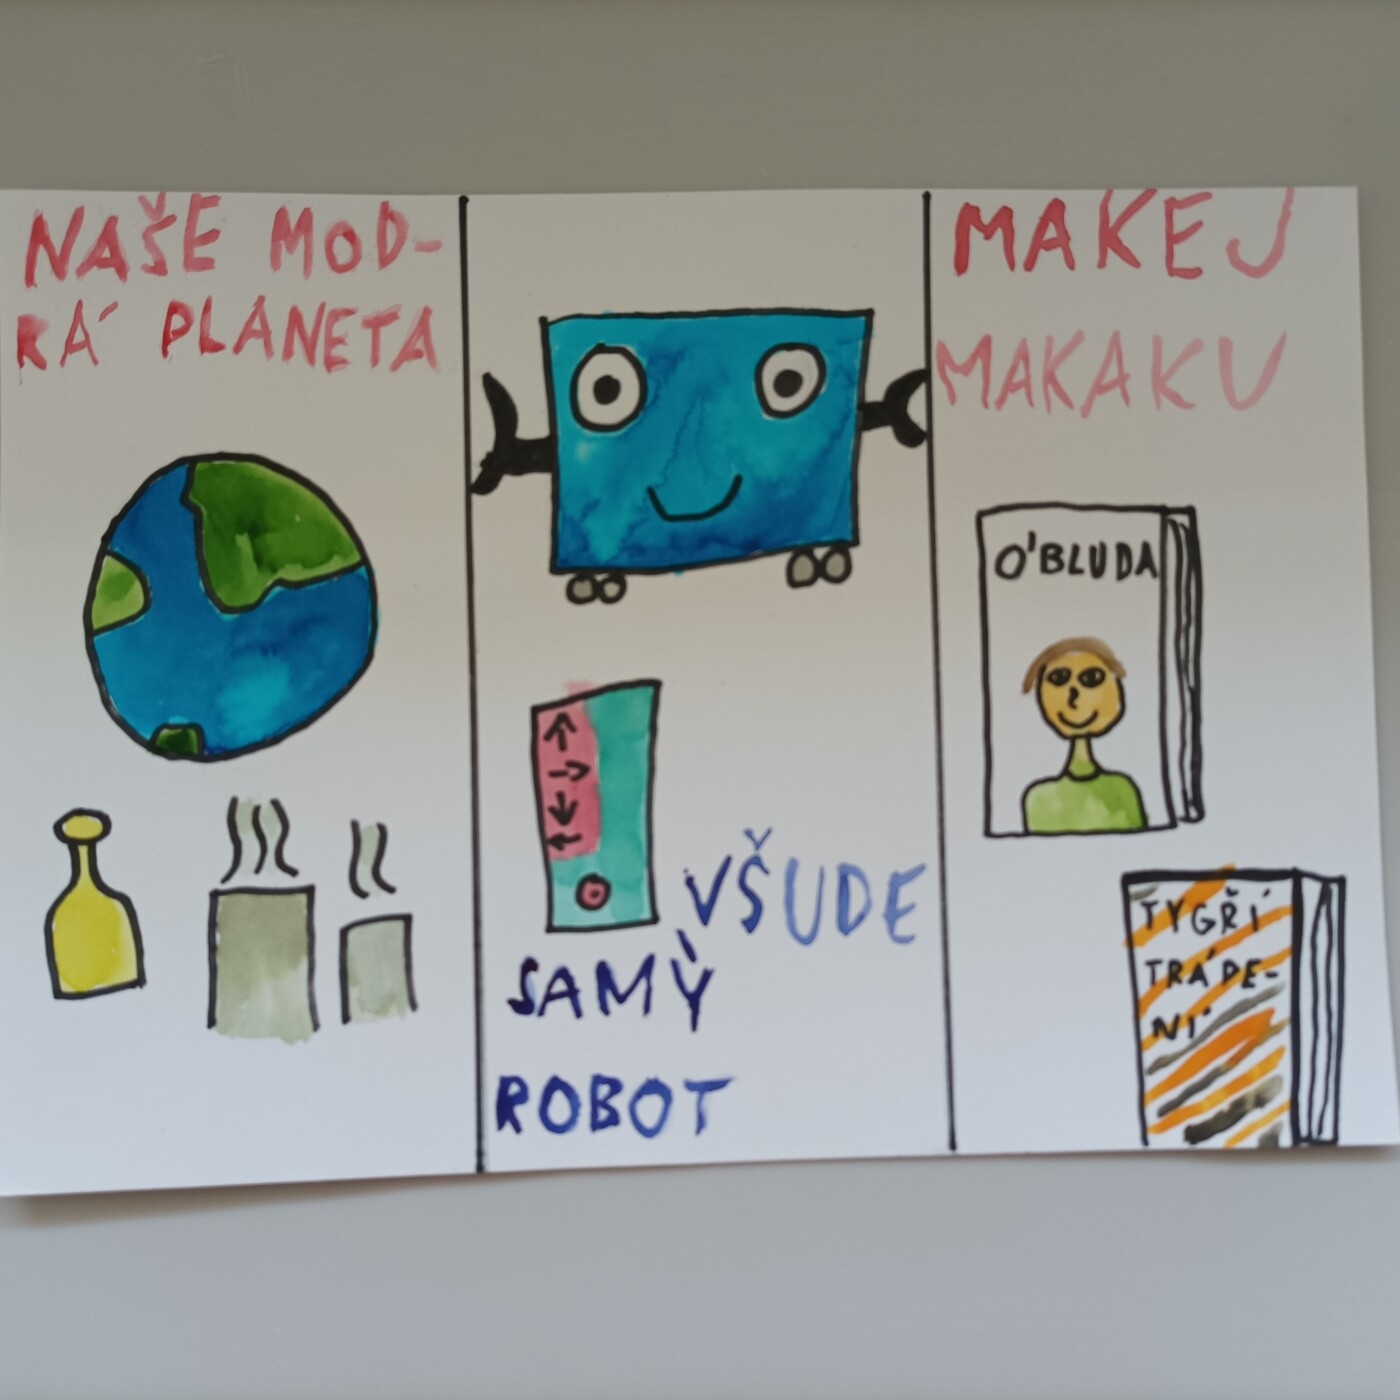 NAŠE MOD-
RÁ PLANETA
VŠUDE
SAMÝ
ROBOT
MAKEJ
MAKAKU
O'BLUDA
TYGŘÍ
TRÁPE-
NÍ